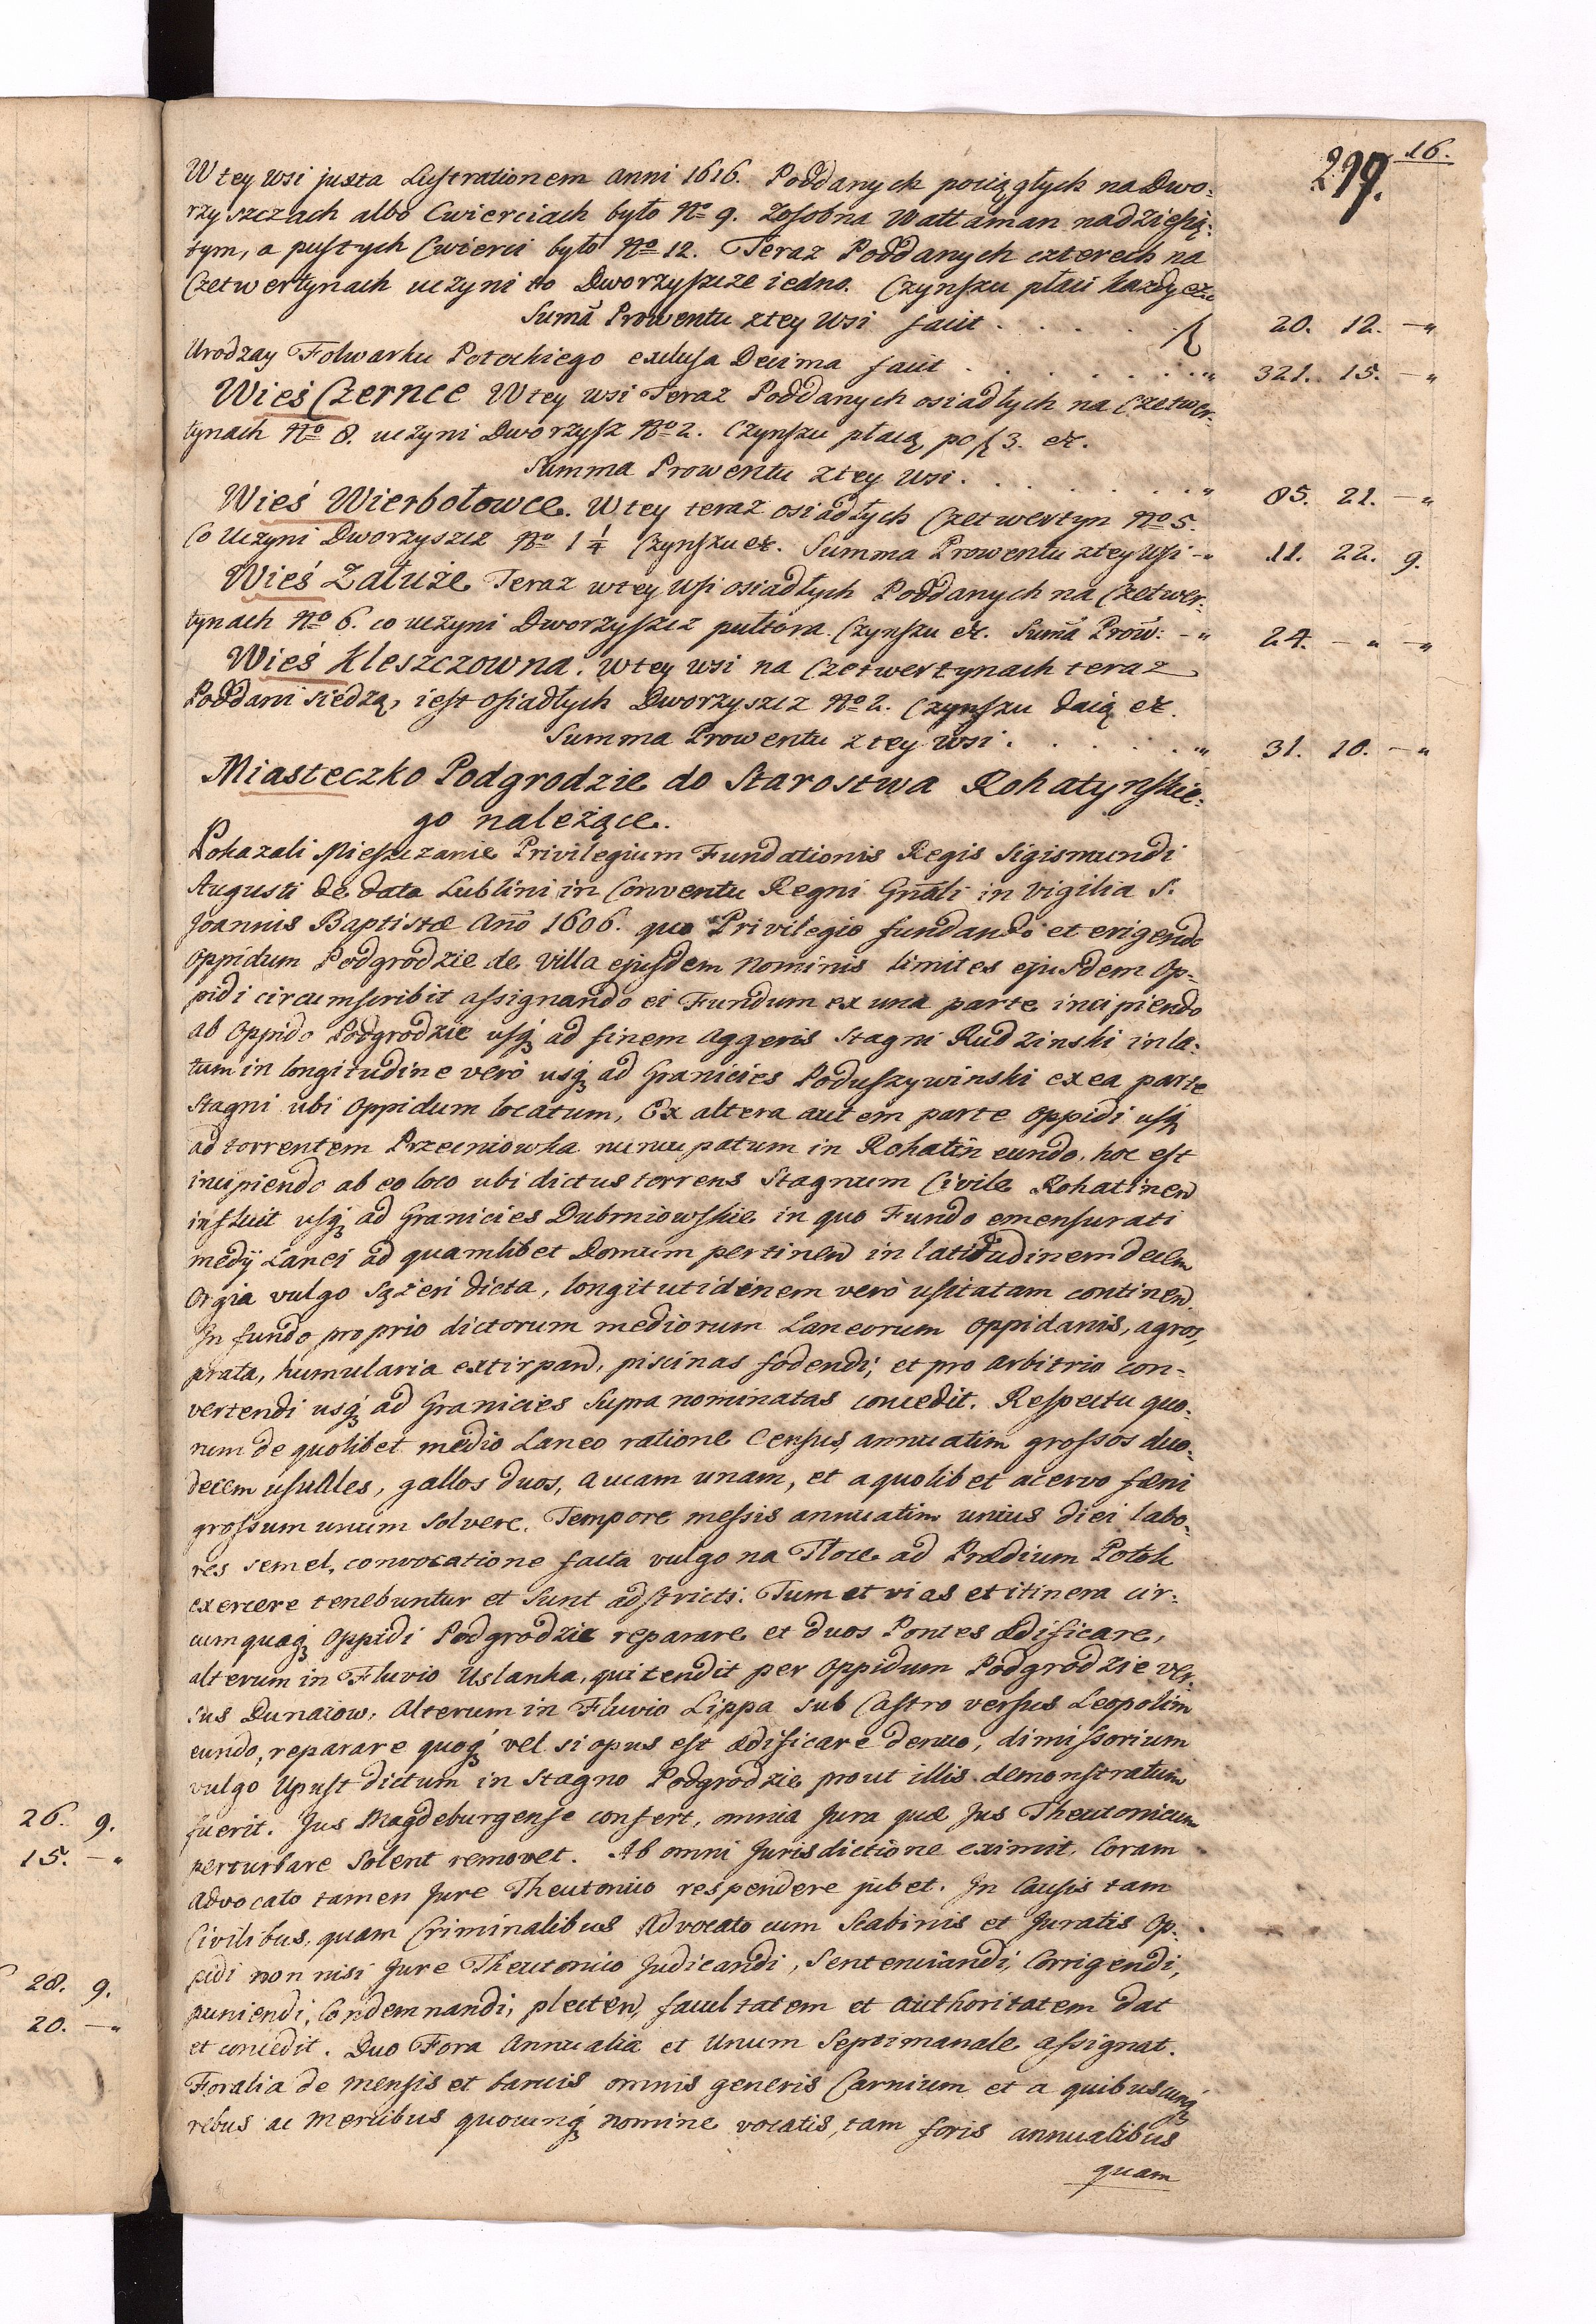 16.
299.
W tey wsi juxta Lustrationem anni 1616. Poddanych pociągłych na Dwo-
rzyszczach albo Cwierciach było No 9. Zosobna Wattaman na dziesią-
tym, a pustych Cwierci było No 12. Teraz Poddanych czterech na
Czetwertynach uczyni to Dworzyszcze iedno. Czynszu płaci kazdy etc
Summa Prowentu z tey Wsi facit . . . . . f 20. 12. —"
Urodzay Folwarku Potockiego exclusa Decima facit . . . . . . " 321. 15. —"
Wieś Czernce W tey wsi Teraz Poddanych osiadłych na Czetwer-
tynach No 8. uczyni Dworzysz No 2. Czynszu płacą po f 3. etc.
Summa Prowentu z tey Wsi . . . . . . . " 85. 21. —"
Wieś Wierbołowce. W tey teraz osiadłych Czetwertyn No 5.
Co Uczyni Dworzyszcz No 1 1/4 Czynszu etc. Summa Prowentu z tey Wsi —" 11. 22. 9.
Wieś Załuże Teraz w tey Wsi osiadłych Poddanych na Czetwer-
tynach No 6. co uczyni Dworzyszcz pułtora. Czynszu etc. Sumā Prow: —" 24. —" —"
Wieś Kleszczowna. W tey wsi na Czetwertynach teraz
Poddani siedzą, iest osiadłych Dworzyszcz No 2. Czynszu daią etc.
Summa Prowentu z tey wsi . . . . . . " 31. 10. —"
Miasteczko Podgrodzie do Starostwa Rohatynskie-
go należące.
Pokazali Mieszczanie Privilegium Fundationis Regis Sigismundi
Augusti de data Lublini in Conventu Regni Gn̄ali in Vigilia S.
Joannis Baptistæ Anō 1606. quo Privilegio fundando et erigendo
oppidum Podgrodzie de Villa ejusdem Nominis limites ejusdem Op-
pidi circumscribit assignando ei Fundum ex una parte incipiendo
ab Oppido Podgrodzie usq ad finem Aggeris Stagni Rudzinski in la-
tum in longitudine verò usq ad Granicies Poduszywinski ex ea parte
Stagni ubi Oppidum locatum, Ex altera autem parte Oppidi usq
ad torrentem Przecniowka nuncupatum in Rohatin eundo, hoc est
incipiendo ab eo loco ubi dictus torrens Stagnum Civile Rohatinen
influit usq ad Granicies Dubrniowskie in quo Fundo emensurati
medÿ Lanei ad quamlibet Domum pertinen in latitudinem decem
Orgia vulgo Sążeri dicta, longitutidinem verò usitatam continen.
In fundo proprio dictorum mediorum Laneorum Oppidanis, agros,
prata, humularia extirpand, piscinas fodendi, et pro arbitrio con-
vertendi usq ad Granicies Supra nominatas concedit. Respectu quo-
rum de quolibet medio Laneo ratione Census annuatim grossos duo-
decem usuales, gallos duos, aucam unam, et a quolibet acervo fæni
grossum unum solvere. Tempore messis annuatim unius diei labo-
res semel, convocatione facta vulgo na Tłoce ad Prædium Potok
exercere tenebuntur et sunt adstricti. Tum et vias et itinera cir-
cumquaq Oppidi Podgrodzie reparare et duos Pontes ædificare,
alterum in Fluvio Uslanka, qui tendit per Oppidum Podgrodzie ver-
sus Dunaiow, Alterum in Fluvio Lippa sub Castro versus Leopolim
eundo, reparare quoq vel si opus est ædificare denuo, dimissorium
vulgo Upust dictum in Stagno Podgrodzie prout illis demonstratum
fuerit. Jus Magdeburgense confert, omnia Jura quæ Jus Theutonicum
perturbare solent removet. Ab omni Jurisdictione eximit. Coram
Advocato tamen Jure Theutonico respondere jubet. In Causis tam
Civilibus, quam Criminalibus Advocato cum Scabinis et Juratis Op-
pidi non nisi Jure Theutonico Judicandi, Sentenciandi, Corrigendi,
puniendi, Condemnandi, plecten, facultatem et authoritatem dat
et concedit. Duo Fora Annualia et Unum Septimanale assignat.
Foralia de mensis et tarcis omnis generis Carnium et a quibuscunq
rebus ac mercibus quocunq nomine vocatis, tam foris annualibus
quam
26. 9.
15. —"
28. 9.
20. —"